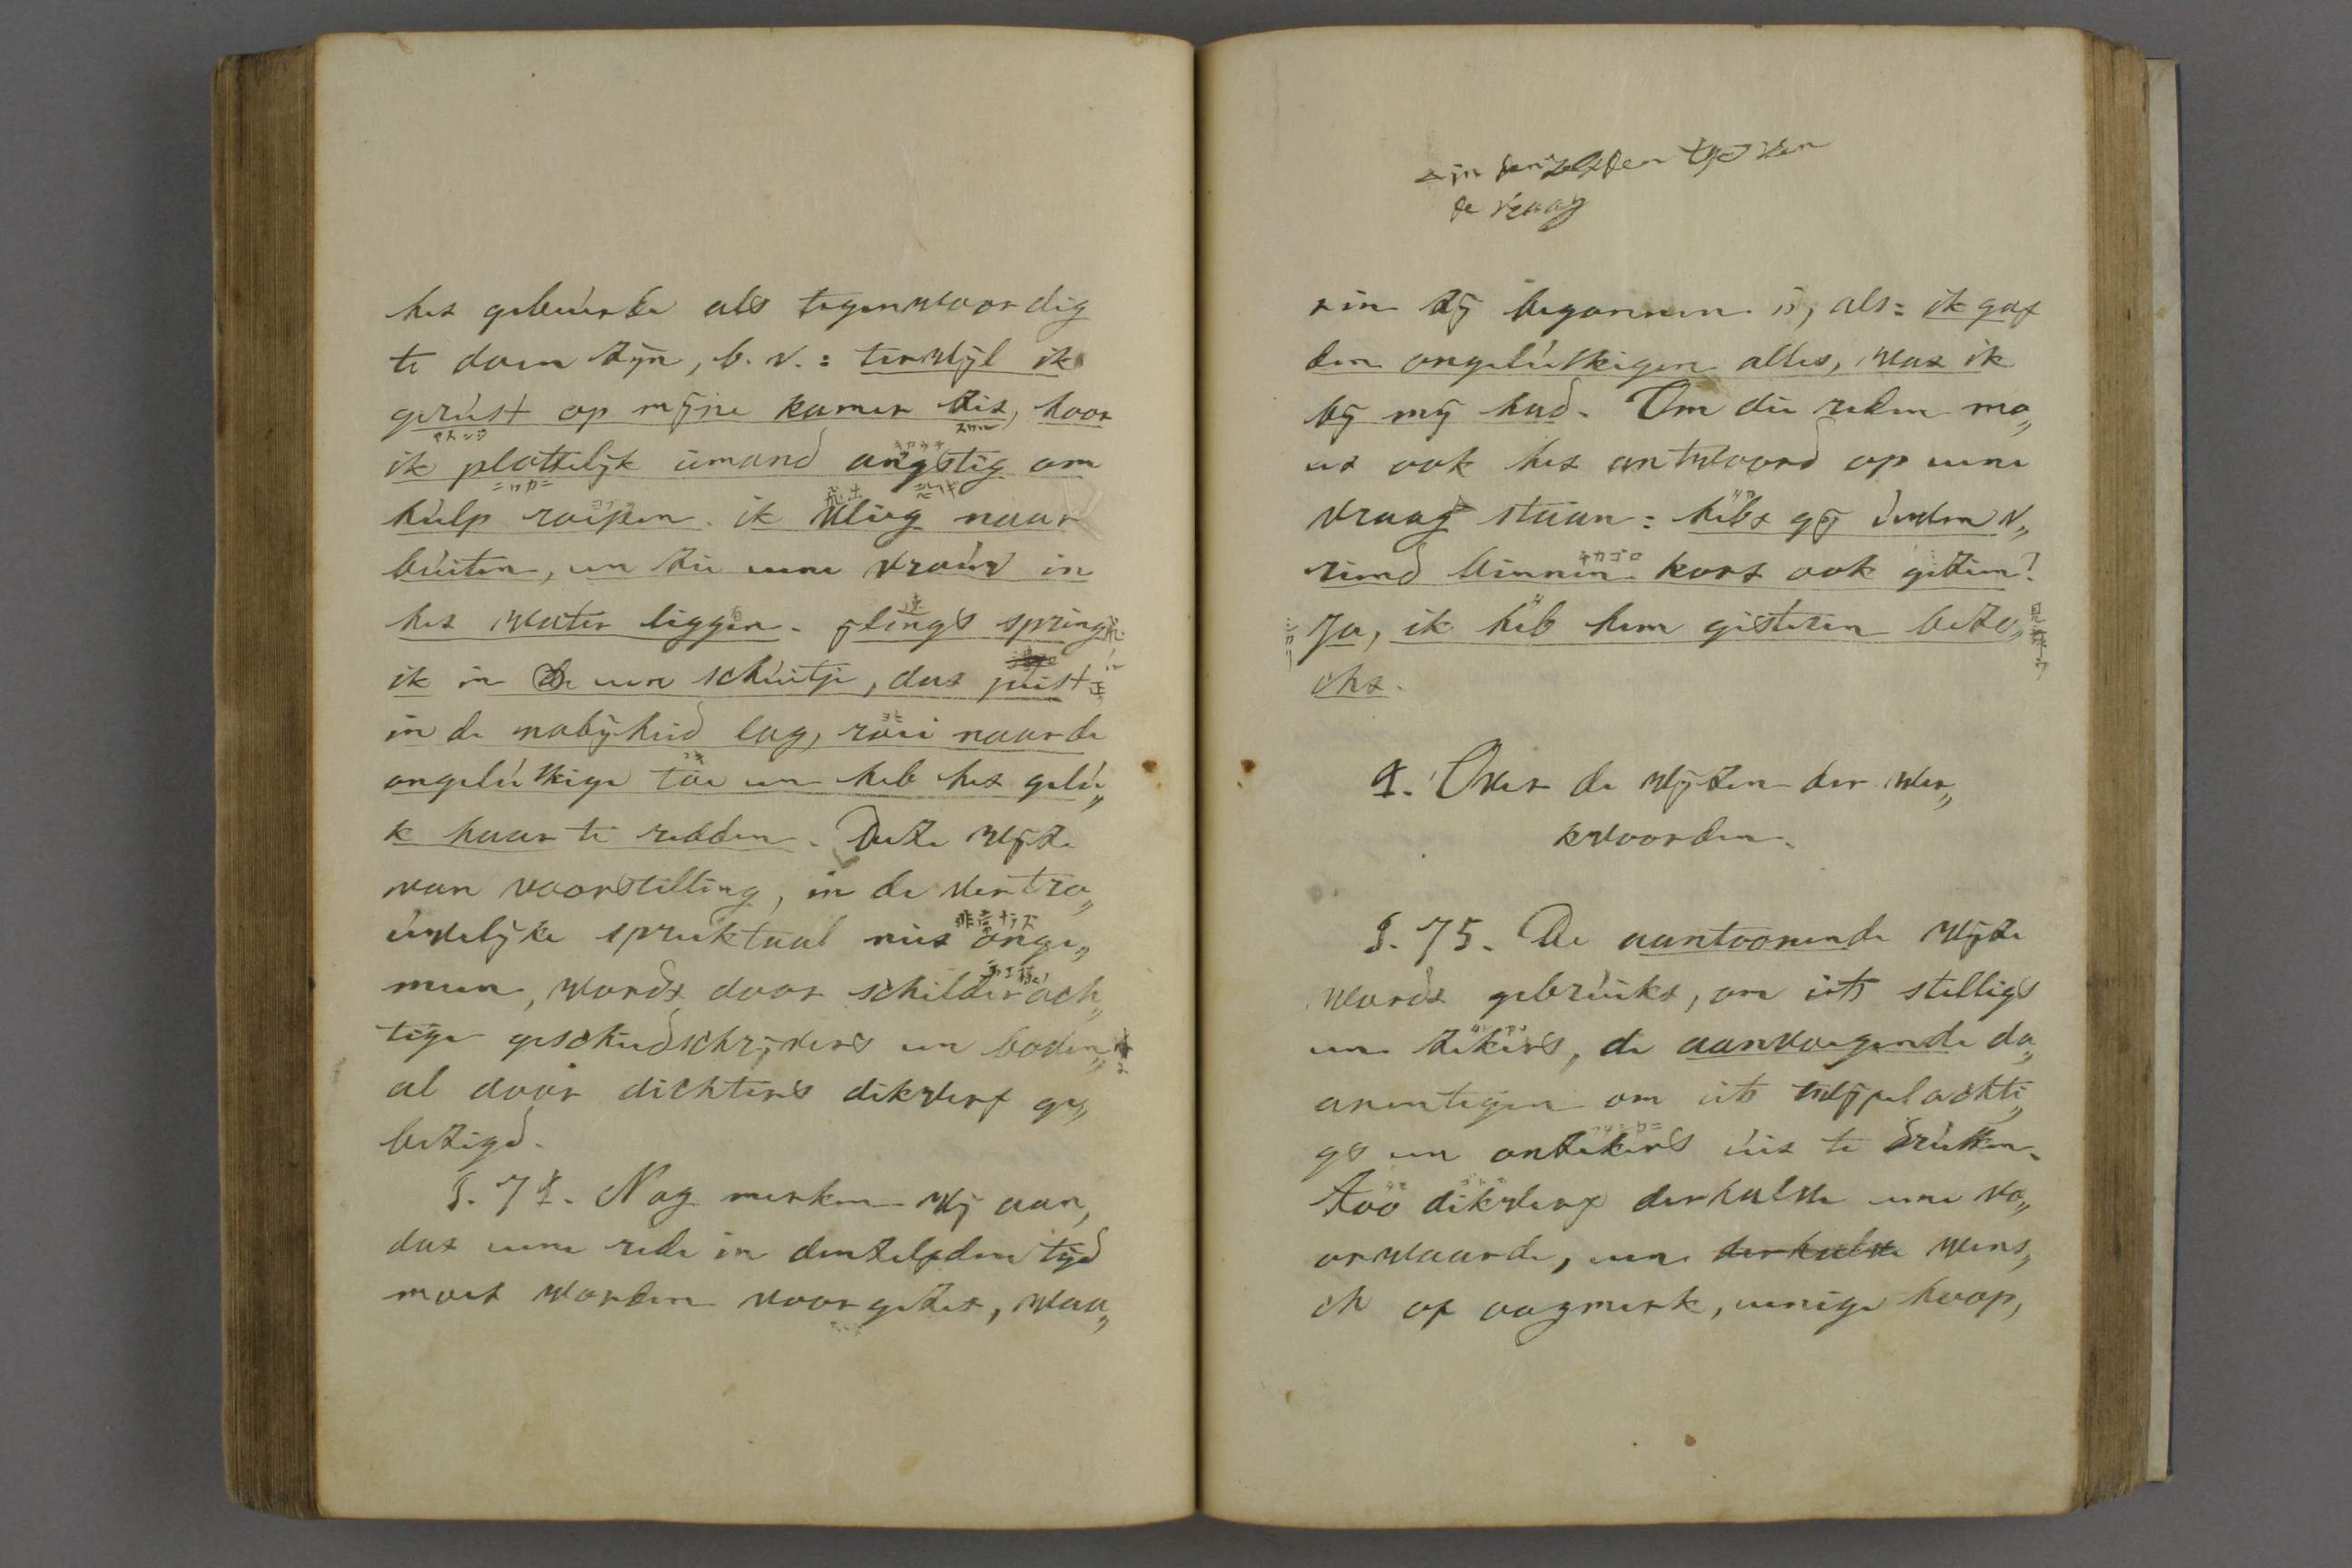 het gebeurde als tegenwoordig
te doen zijn, b. v.: terwijl ik
gerúst op mijne kamer zit, hoor
ik plotselijk iemand angstig om
húlp roepen. ik vlieg naar
búiten, en zie eene vroúw in
het water liggen. ijlings spring
ik in een schúitje, dat júist
in de nabijheid lag, roei naar de
ongelúkkige toe en heb het gelú„
k haar te redden. Deze wijze
van voorstelling, in de vertro„
úwelijke spreektaal niet onge„
meen, wordt door schilderach„
tige geschiedschrijvers en boven„
al door dichters dikwerf ge„
bezigd.
§. 74. Nog merken wij aan,
dat eene rede in denzelfden tijd
moet worden voorgezet, waa„
in denzelfden tijd
de vraag
rin zij begonnen is, als: ik gaf
den ongelúkkigen alles, wat ik
bij mij had. Om die reden mo„
et ook het antwoord op eene
vraag staan: hebt gij úwen v„
riend binnen kort ook gezien?
チカゴロ
Ja, ik heb hem gisteren bezo„
cht.
Over de wijzen der wer„
kwoorden.
§. 75. De aantoonende wijze
wordt gebrúikt, om iets stelligs
en zekers, de aanvoegende da„
arentegen om iets twijfelachti„
gs en onzekers úit te drúkken.
Zoo dikwerf derhalve eene vo„
orwaarde, een derhalve wens„
ch of oogmerk, eenige hoop,